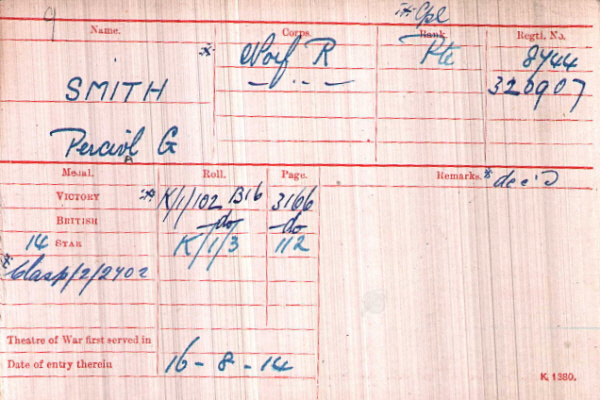 Cpl
Name. Corps. Rank Regtl. No.
Norf R Pte 8744
SMITH — „ — 320907
Percival G
Medal. Roll. Page. Remarks. dec'd
VICTORY K/1/102 B16 3166
BRITISH do do
14 STAR K/1/3 112
Clasp/2/2402
Theatre of War first served in
Date of entry therein 16-8-14
K. 1380.